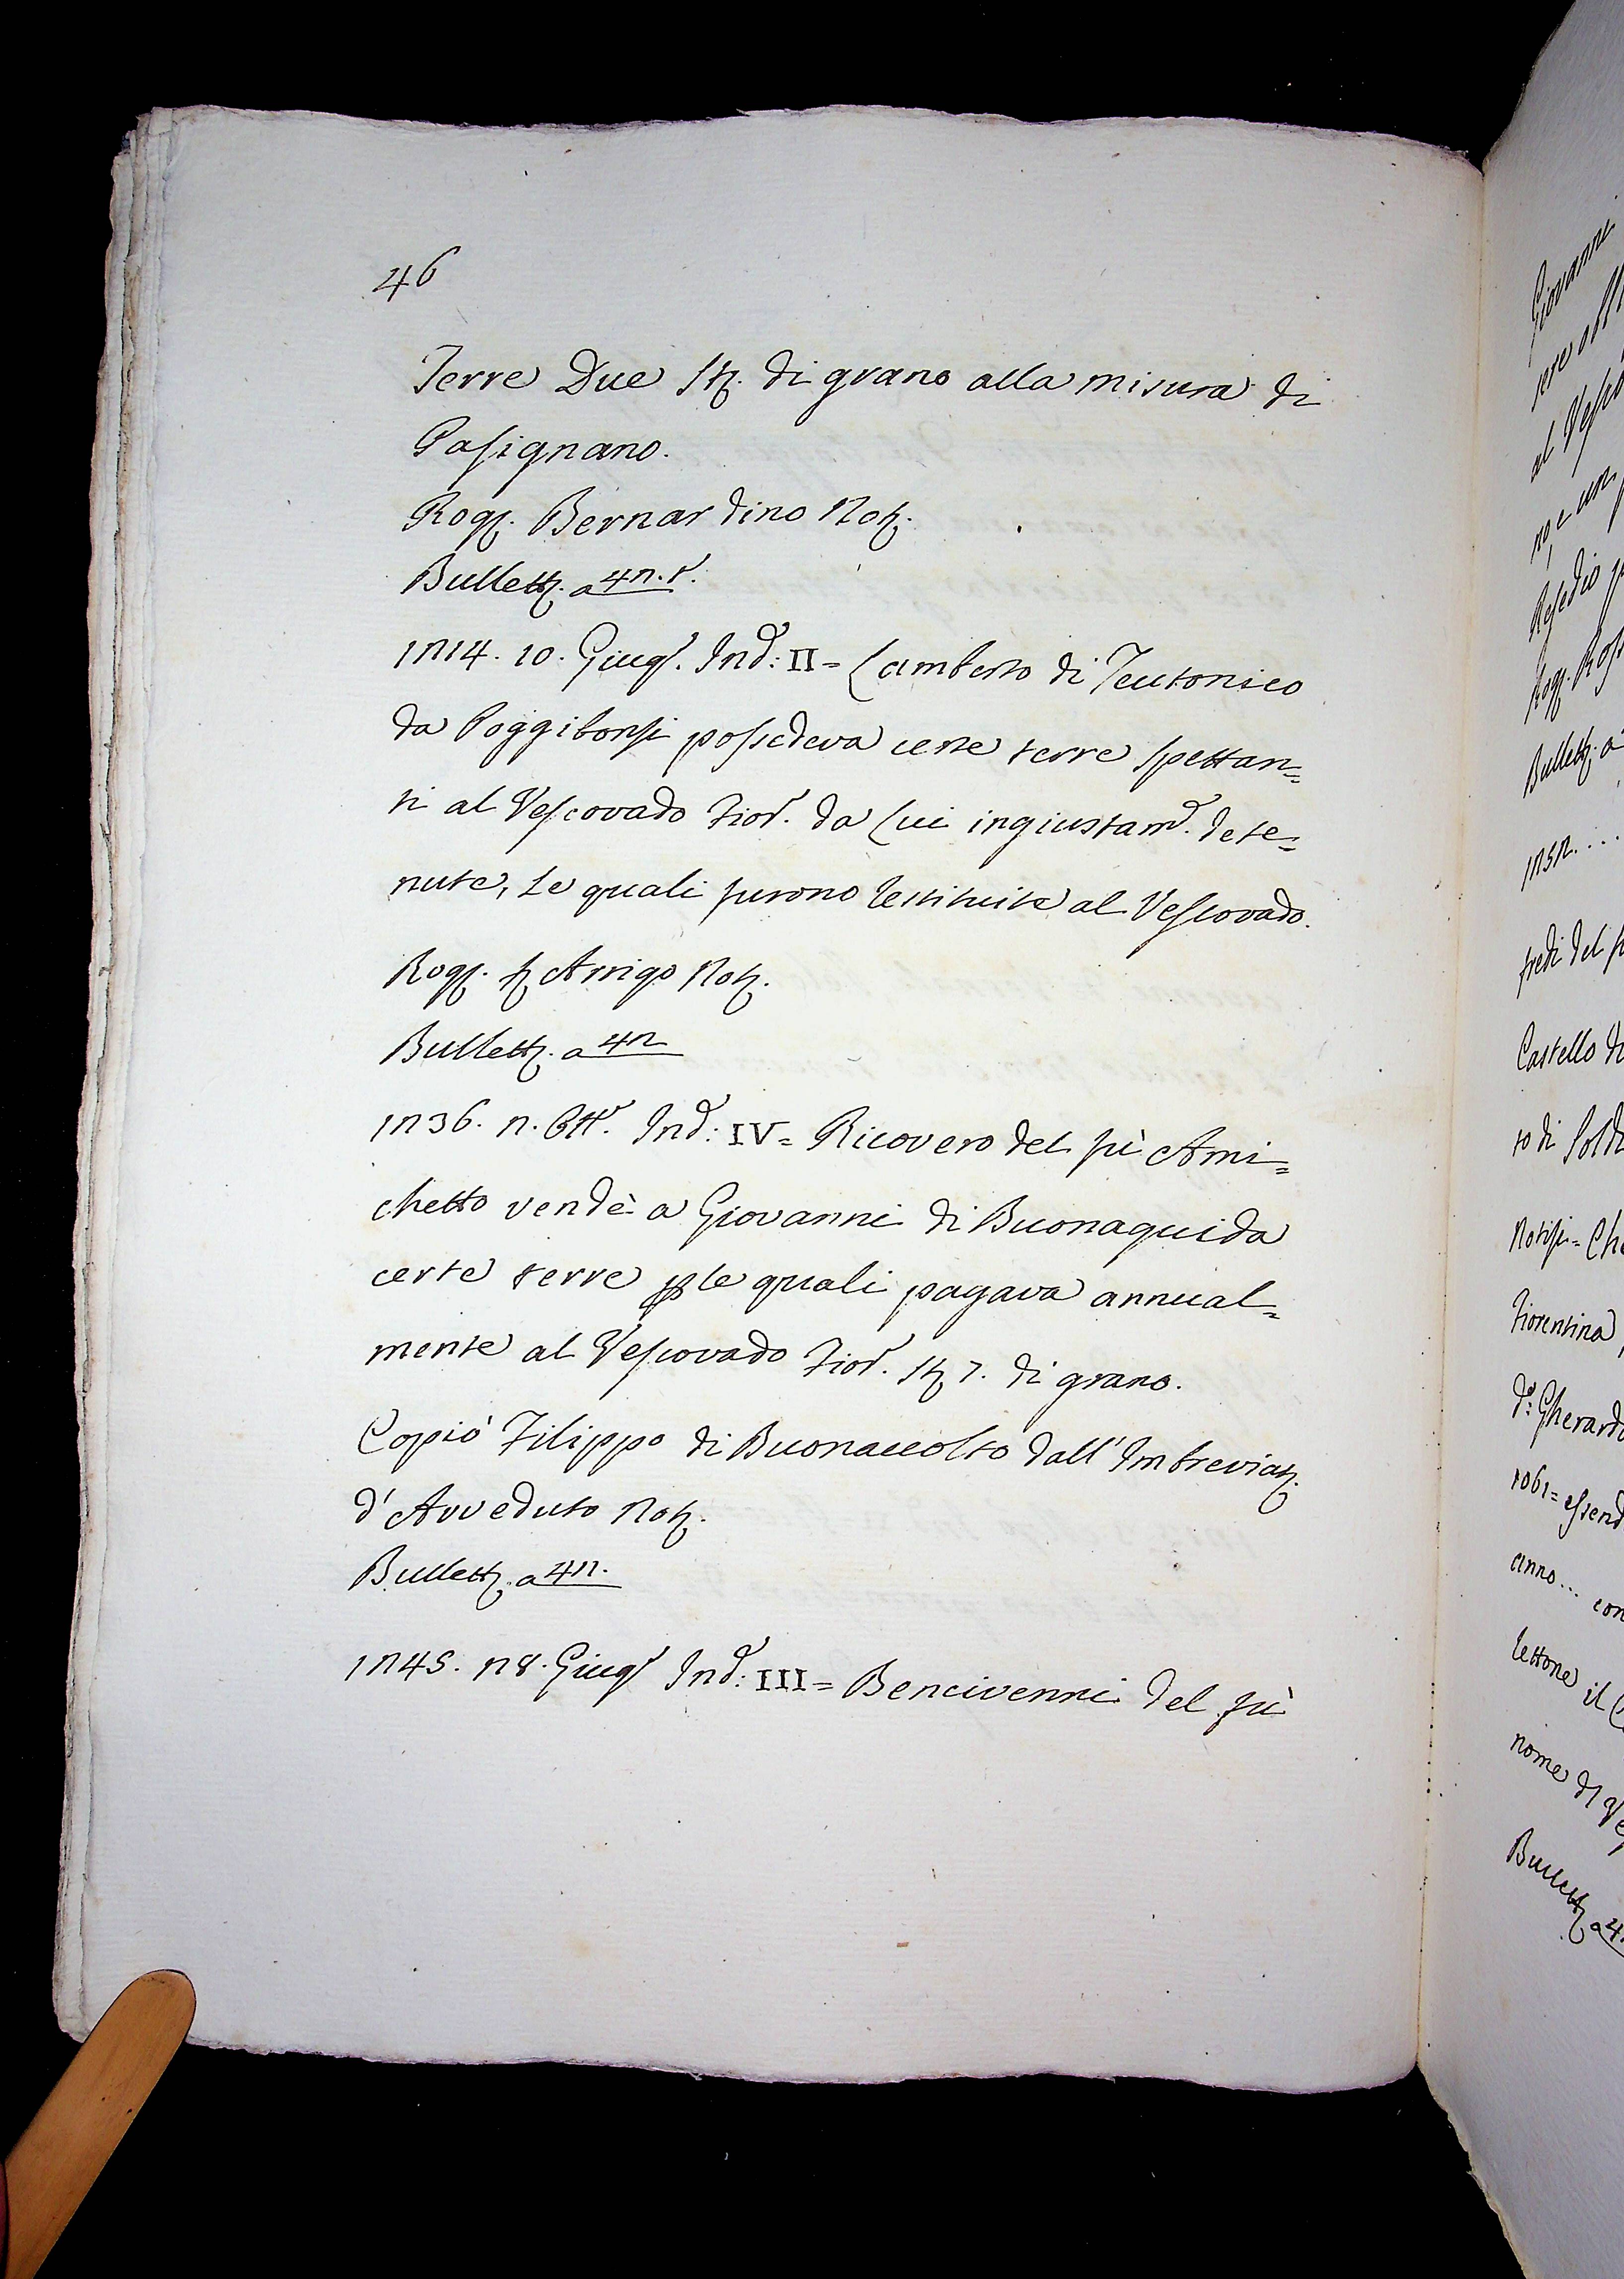 46
Terre Due St. di grano alla misura di
Pasignano.
Rog. Bernardino Not.
Bullett. a 42. t.
1214. 10. Giug. Ind: II = Lamberto di Teutonico
da Poggibonsi possedeva certe terre spettan=
ti al Vescovado Fior. da lui ingiustam. dete=
nute, le quali furono restituite al Vescovado.
Rog. Arrigo Not.
Bullett. a 42
1236. 2. Ott. Ind: IV = Ricovero del fù Ami=
chetto vendè a Giovanni di Buonaguida
certe terre p le quali pagava annual=
mente al Vescovado Fior. St. 7. di grano.
Copiò Filippo di Buonaccolto dall' Imbreviat.
d' Avveduto Not.
Bullett. a 42.
1245. 28. Giug Ind: III = Bencivenni del fù
Giovanni
al Vesco
no, e un
Resedio
Rog. Ross
Bullett. a
1252. ...
fredi del
Castello di
to di Sold
Fiorentina
d.° Gherardo
1061 = essend
anno ... con
lettone il
nome d
Bullett. a 4